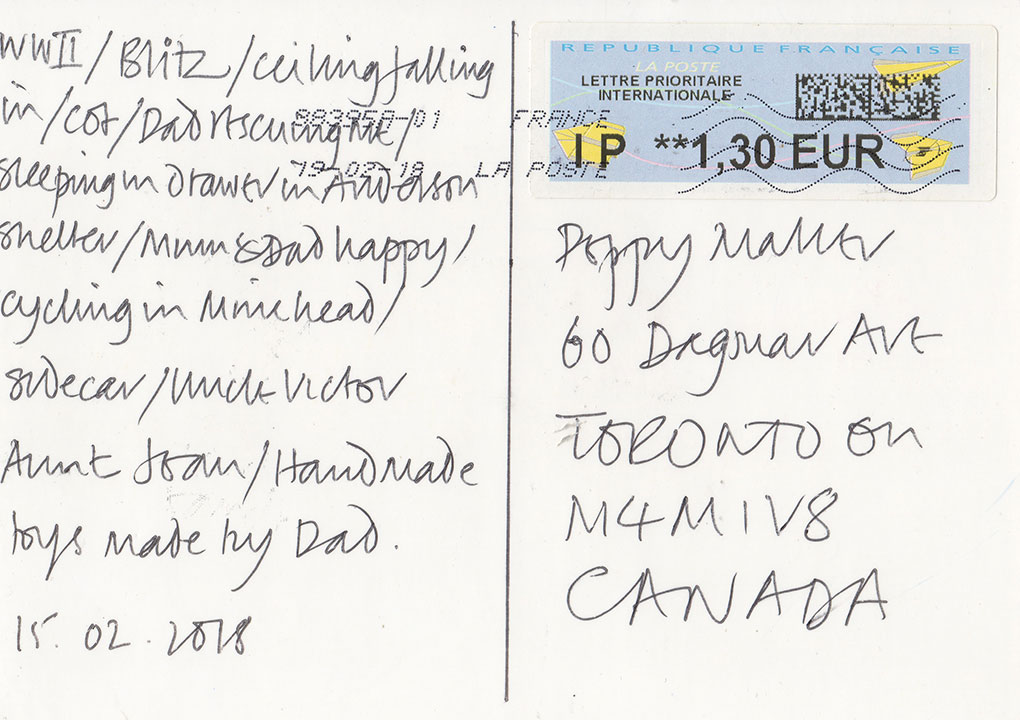 WWII/Blitz/ceiling falling
in/cot/Dad rescuing me/
sleeping in drawer in Anderson
shelter/Mum & Dad happy/
cycling in Minehead/
sidecar/Uncle Victor
Aunt Joan/Handmade
toys made by Dad.
15.02.2018
REPUBLIQUE FRANÇAISE
LA POSTE
LETTRE PRIORITAIRE
INTERNATIONALE
IP **1,30 EUR
FRANCE
19-02-18 LA POSTE
60 Dagmar Ave
TORONTO ON
M4M 1V8
CANADA